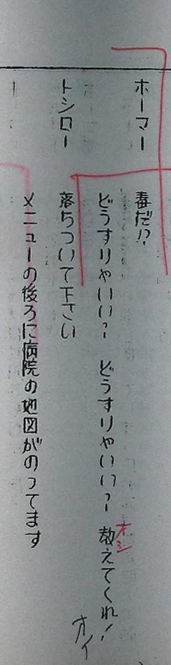 ホーマー 毒だ!?
どうすりゃいい? どうすりゃいい? 教えてくれ!
オシ
オイ
トシロー 落ちついて下さい
メニューの後ろに病院の地図がのってます